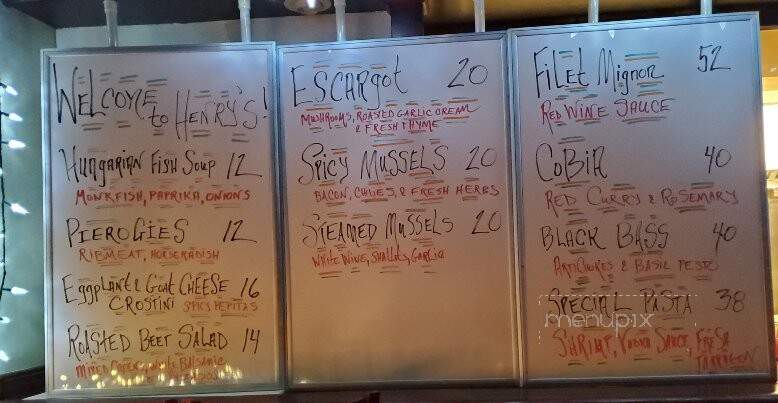 WELCOME
to HENRY'S!
HUNGARIAN FISH SOUP 12
MONKFISH, PAPRIKA, ONIONS
PIEROGIES 12
RIBMEAT, HORSERADISH
EGGPLANT & GOAT CHEESE 16
CROSTINI SPICY PEPITAS
ROASTED BEET SALAD 14
MIXED GREENS, WHITE BALSAMIC
ESCARGOT 20
MUSHROOMS, ROASTED GARLIC CREAM
& FRESH THYME
SPICY MUSSELS 20
BACON, CHILIES, & FRESH HERBS
STEAMED MUSSELS 20
WHITE WINE, SHALLOTS, GARLIC
FILET MIGNON 52
RED WINE SAUCE
COBIA 40
RED CURRY & ROSEMARY
BLACK BASS 40
ARTICHOKES & BASIL PESTO
SPECIAL PASTA 38
menupix
SHRIMP, VODKA SAUCE, FRESH
TARRAGON